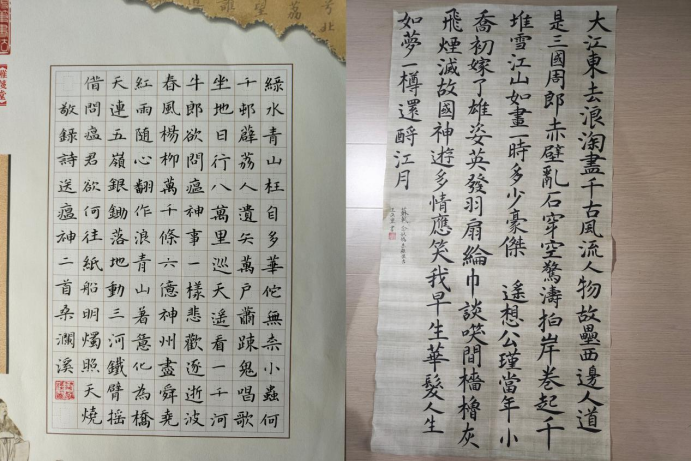 綠水青山枉自多華佗無柰小蟲何
千邨薜荔人遺矢萬戶蕭疎鬼唱歌
坐地日行八萬里巡天遥看一千河
牛郎欲問瘟神事一樣悲歡逐逝波
春風楊柳萬千條六億神州盡舜堯
紅雨隨心翻作浪青山著意化為橋
天連五嶺銀鋤落地動三河鐵臂搖
借問瘟君欲何往紙船明燭照天燒
敬録詩送瘟神二首桑瀾溪
大江東去浪淘盡千古風流人物故壘西邊人道
是三國周郎赤壁亂石穿空驚濤拍岸卷起千
堆雪江山如畫一時多少豪傑 遙想公瑾當年小
喬初嫁了雄姿英發羽扇綸巾談笑間檣櫓灰
飛煙滅故國神遊多情應笑我早生華髮人生
如夢一樽還酹江月